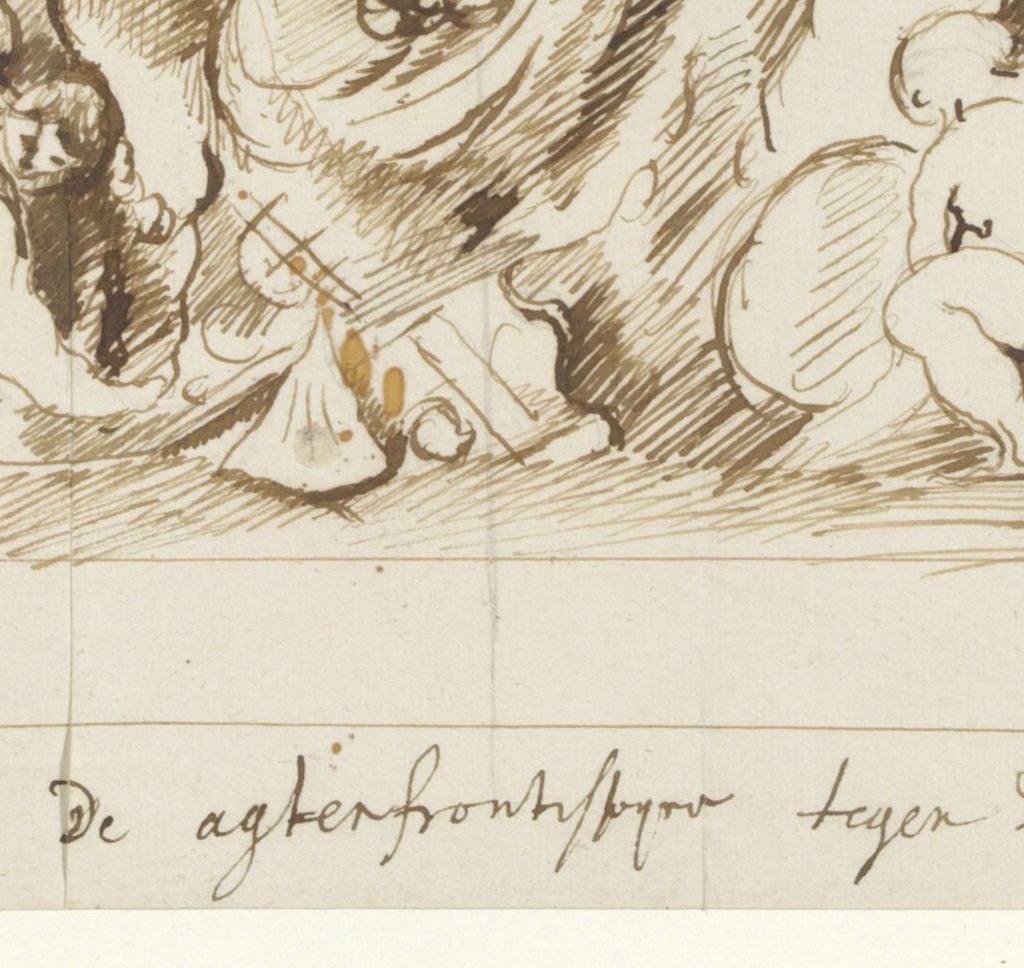 De agterfrontispys tegen